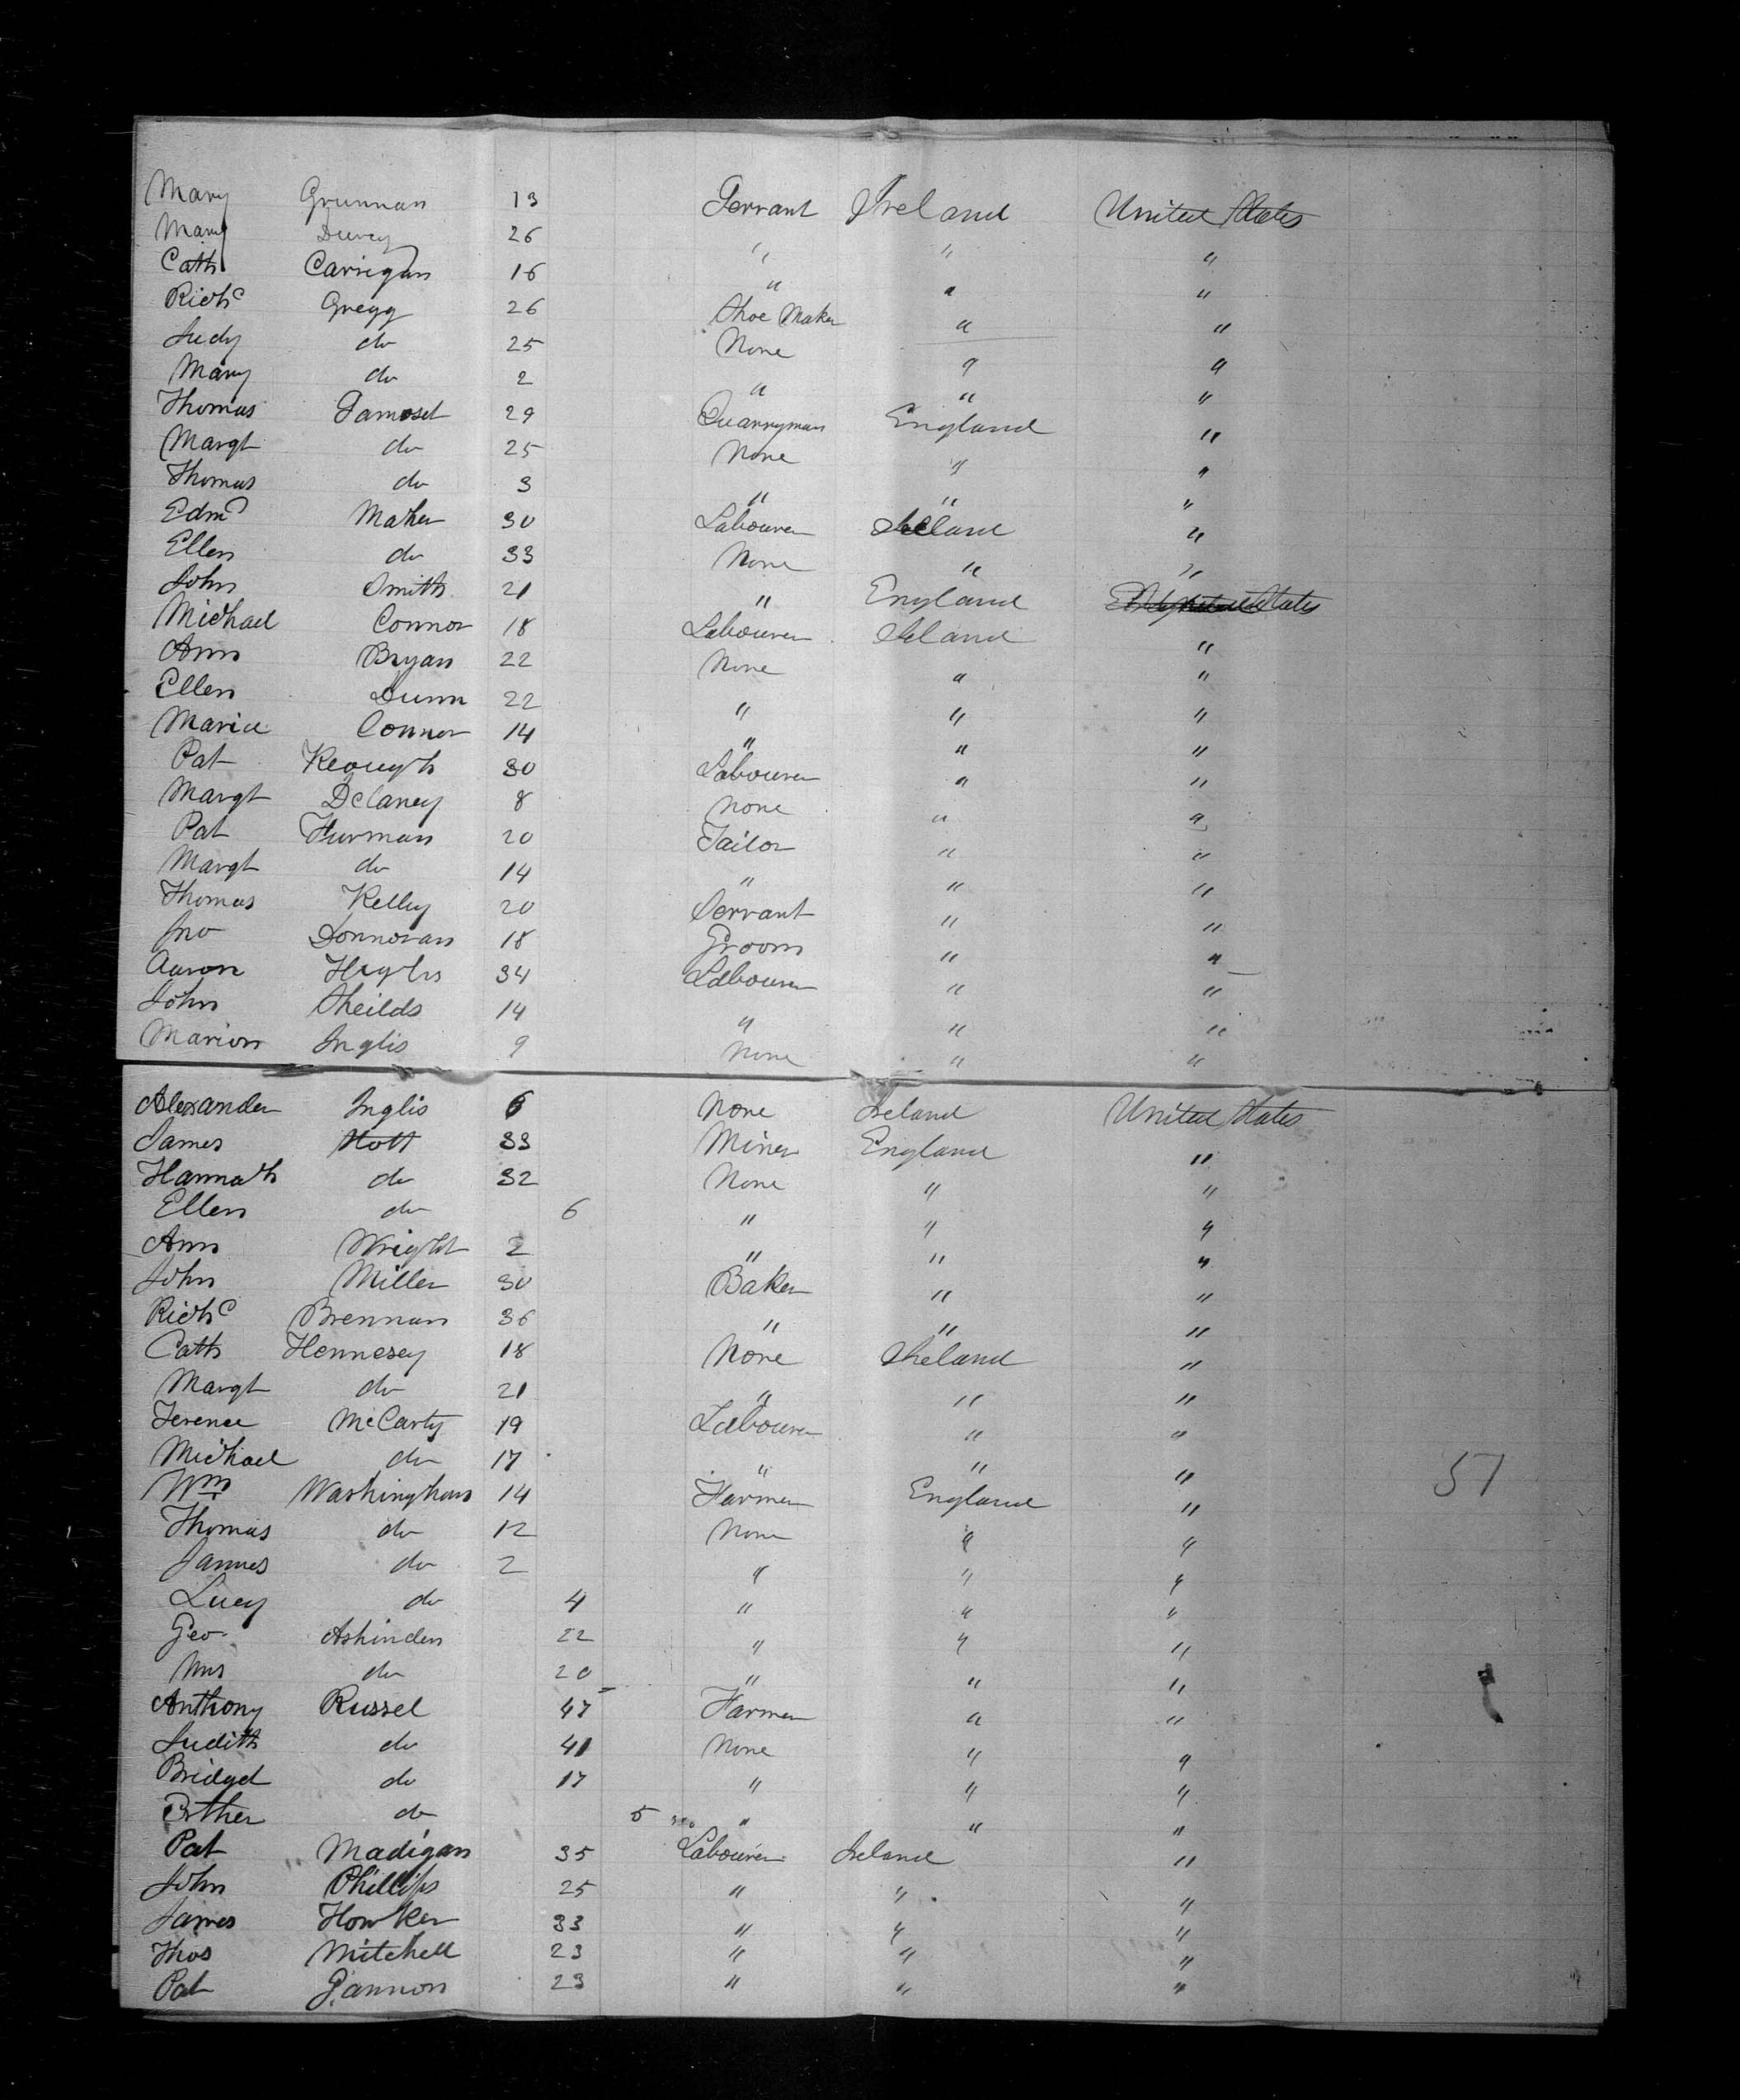 Mary Grunnan 13 Servant Ireland United States
Mary Durcy 26 " " "
Cath Carrigan 16 " " "
Richd Gregg 26 Shoe Maker " "
Judy do 25 None " "
Mary do 2 " " "
Thomas Gamosel 29 Quarryman England "
Margt do 25 None " "
Thomas do 3 " " "
Edmd Maher 30 Labourer Ireland "
Ellen do 33 None " "
John Smith 21 " England States
Michael Connor 18 Labourer Ireland "
Ann Bryan 22 None " "
Ellen Dunn 22 " " "
Maria Connor 14 " " "
Pat Keough 30 Labourer " "
Margt Delaney 8 None " "
Pat Furman 20 Tailor " "
Margt do 14 " " "
Thomas Kelley 20 Servant " "
Jno Donnovan 18 Groom " "
Aaron Heghs 34 Labourer " "
John Sheilds 14 " " "
Marion Inglis 9 None " "
Alexander Inglis 6 None Ireland United States
James Stott 33 Miner England "
Hannah do 32 None " "
Ellen do 6 " " "
Ann Wright 2 " " "
John Miller 30 Baker " "
Richd Brennan 36 " " "
Cath Hennesey 18 None Ireland "
Margt do 21 " " "
Terence McCarty 19 Labourer " "
Michael do 17 " " "
Wm Washington 14 Farmer England "
57
Thomas do 12 None " "
James do 2 " " "
Lucy do 4 " " "
Geo Ashinden 22 " " "
Mrs do 20 " " "
Anthony Russel 47 Farmer " "
Judith do 41 None " "
Bridget do 17 " " "
Esther do 5 " " "
Pat Madigan 35 Labourer Ireland "
John Phillips 25 " " "
James Howker 33 " " "
Thos Mitchell 23 " " "
Pat Gannon 23 " " "